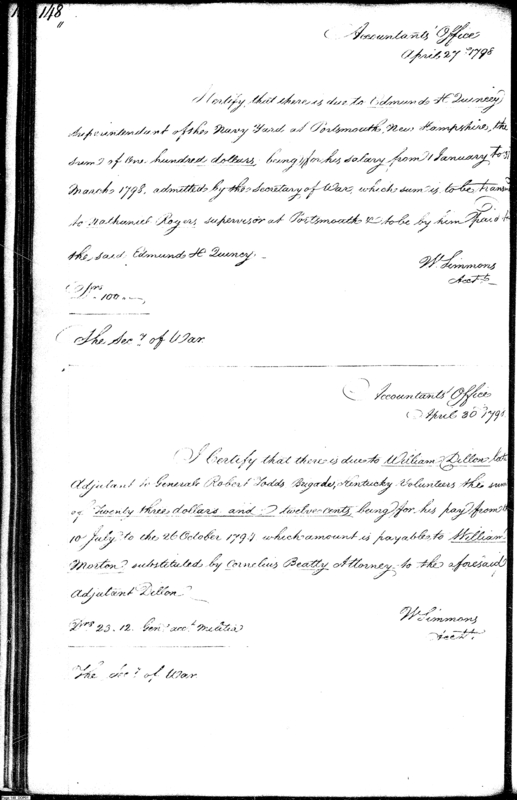 148
Accountants' Office
April 27th 1798
I Certify that there is due to Edmund H Quincey
Superintendant of the Navy Yard at Portsmouth, New Hampshire, the
sum of one hundred dollars, being for his salary from 1 January to 31
March 1798. admitted by the Secretary of War, which sum is to be
to Nathaniel Rogers, supervisor at Portsmouth & to be by him paid to
the said Edmund H Quincy
Wm Simmons
Acctt
Drs 100
The Secy of War
Accountants' Office
April 30th
I Certify that there is due to William Dillon late
Adjutant in Generals Robert Todds Brigade, Kentucky Volunteers the sum
of Twenty three dollars and twelve cents, being for his pay from
10 July to the 26 October 1794 which amount is payable to William
Morton substituted by Cornelius Beatty Attorney to the aforesaid
Adjutant Dillon
Wm Simmons
Acctt.
Drs 23.12. Genl acct Militia
The Secy of War